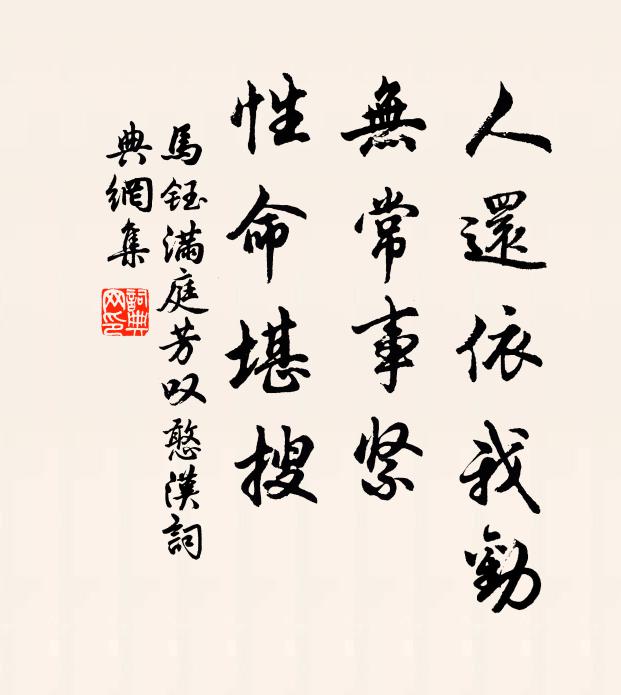 人還依我勸
無常事緊
性命堪搜
馬鈺滿庭芳叹憨漢詞
典網集
詞典网印